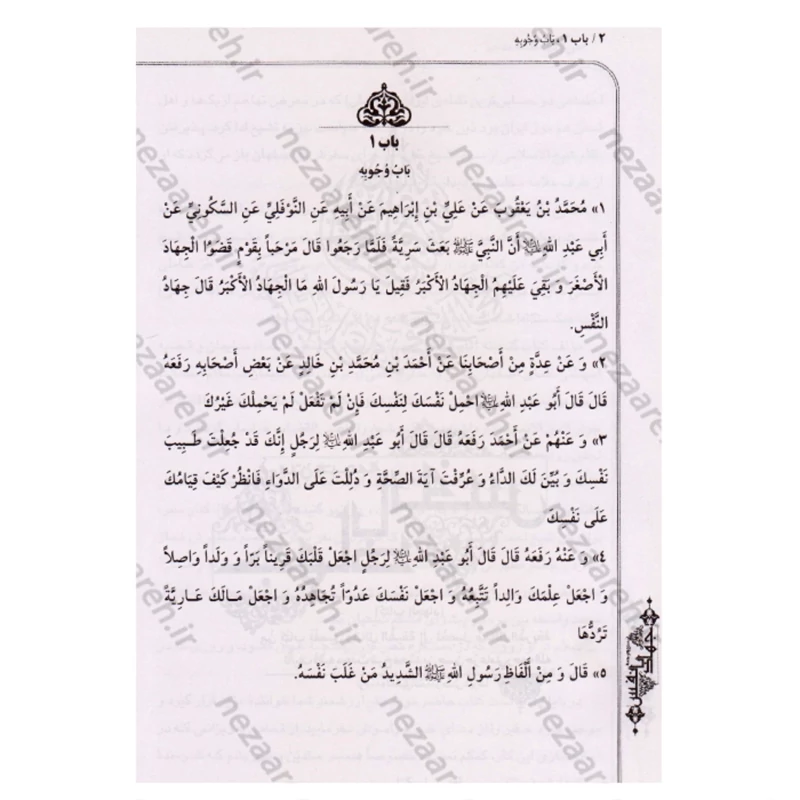 ٢ / باب ١ ، بَابُ وُجُوبِهِ
باب ١
بَابُ وُجُوبِهِ
١» مُحَمَّدُ بْنُ يَعْقُوبَ عَنْ عَلِيِّ بْنِ إِبْرَاهِيمَ عَنْ أَبِيهِ عَنِ النَّوْفَلِيِّ عَنِ السَّكُونِيِّ عَنْ
أَبِي عَبْدِ اللهِ ﷷ أَنَّ النَّبِيَّ ﷺ بَعَثَ سَرِيَّةً فَلَمَّا رَجَعُوا قَالَ مَرْحَباً بِقَوْمٍ قَضَوُا الْجِهَادَ
الْأَصْغَرَ وَ بَقِيَ عَلَيْهِمُ الْجِهَادُ الْأَكْبَرُ فَقِيلَ يَا رَسُولَ اللهِ مَا الْجِهَادُ الْأَكْبَرُ قَالَ جِهَادُ
النَّفْسِ.
٢» وَ عَنْ عِدَّةٍ مِنْ أَصْحَابِنَا عَنْ أَحْمَدَ بْنِ مُحَمَّدِ بْنِ خَالِدٍ عَنْ بَعْضِ أَصْحَابِهِ رَفَعَهُ
قَالَ قَالَ أَبُو عَبْدِ اللهِ احْمِلْ نَفْسَكَ لِنَفْسِكَ فَإِنْ لَمْ تَفْعَلْ لَمْ يَحْمِلْكَ غَيْرُكَ
٣» وَ عَنْهُمْ عَنْ أَحْمَدَ رَفَعَهُ قَالَ قَالَ أَبُو عَبْدِ اللهِ لِرَجُلٍ إِنَّكَ قَدْ جُعِلْتَ طَبِيبَ
نَفْسِكَ وَ بُيِّنَ لَكَ الدَّاءُ وَ عُرِّفْتَ آيَةَ الصِّحَّةِ وَ دُلِلْتَ عَلَى الدَّوَاءِ فَانْظُرْ كَيْفَ قِيَامُكَ
عَلَى نَفْسِكَ
٤» وَ عَنْهُ رَفَعَهُ قَالَ قَالَ أَبُو عَبْدِ اللهِ لِرَجُلٍ اجْعَلْ قَلْبَكَ قَرِيناً بَرّاً وَ وَلَداً وَاصِلاً
وَ اجْعَلْ عِلْمَكَ وَالِداً تَتَّبِعُهُ وَ اجْعَلْ نَفْسَكَ عَدُوّاً تُجَاهِدُهُ وَ اجْعَلْ مَالَكَ عَارِيَّةً
تَرُدُّهَا
٥» قَالَ وَ مِنْ أَلْفَاظِ رَسُولِ اللهِ ﷺ الشَّدِيدُ مَنْ غَلَبَ نَفْسَهُ.
جهاد النفس
nezaareh.ir